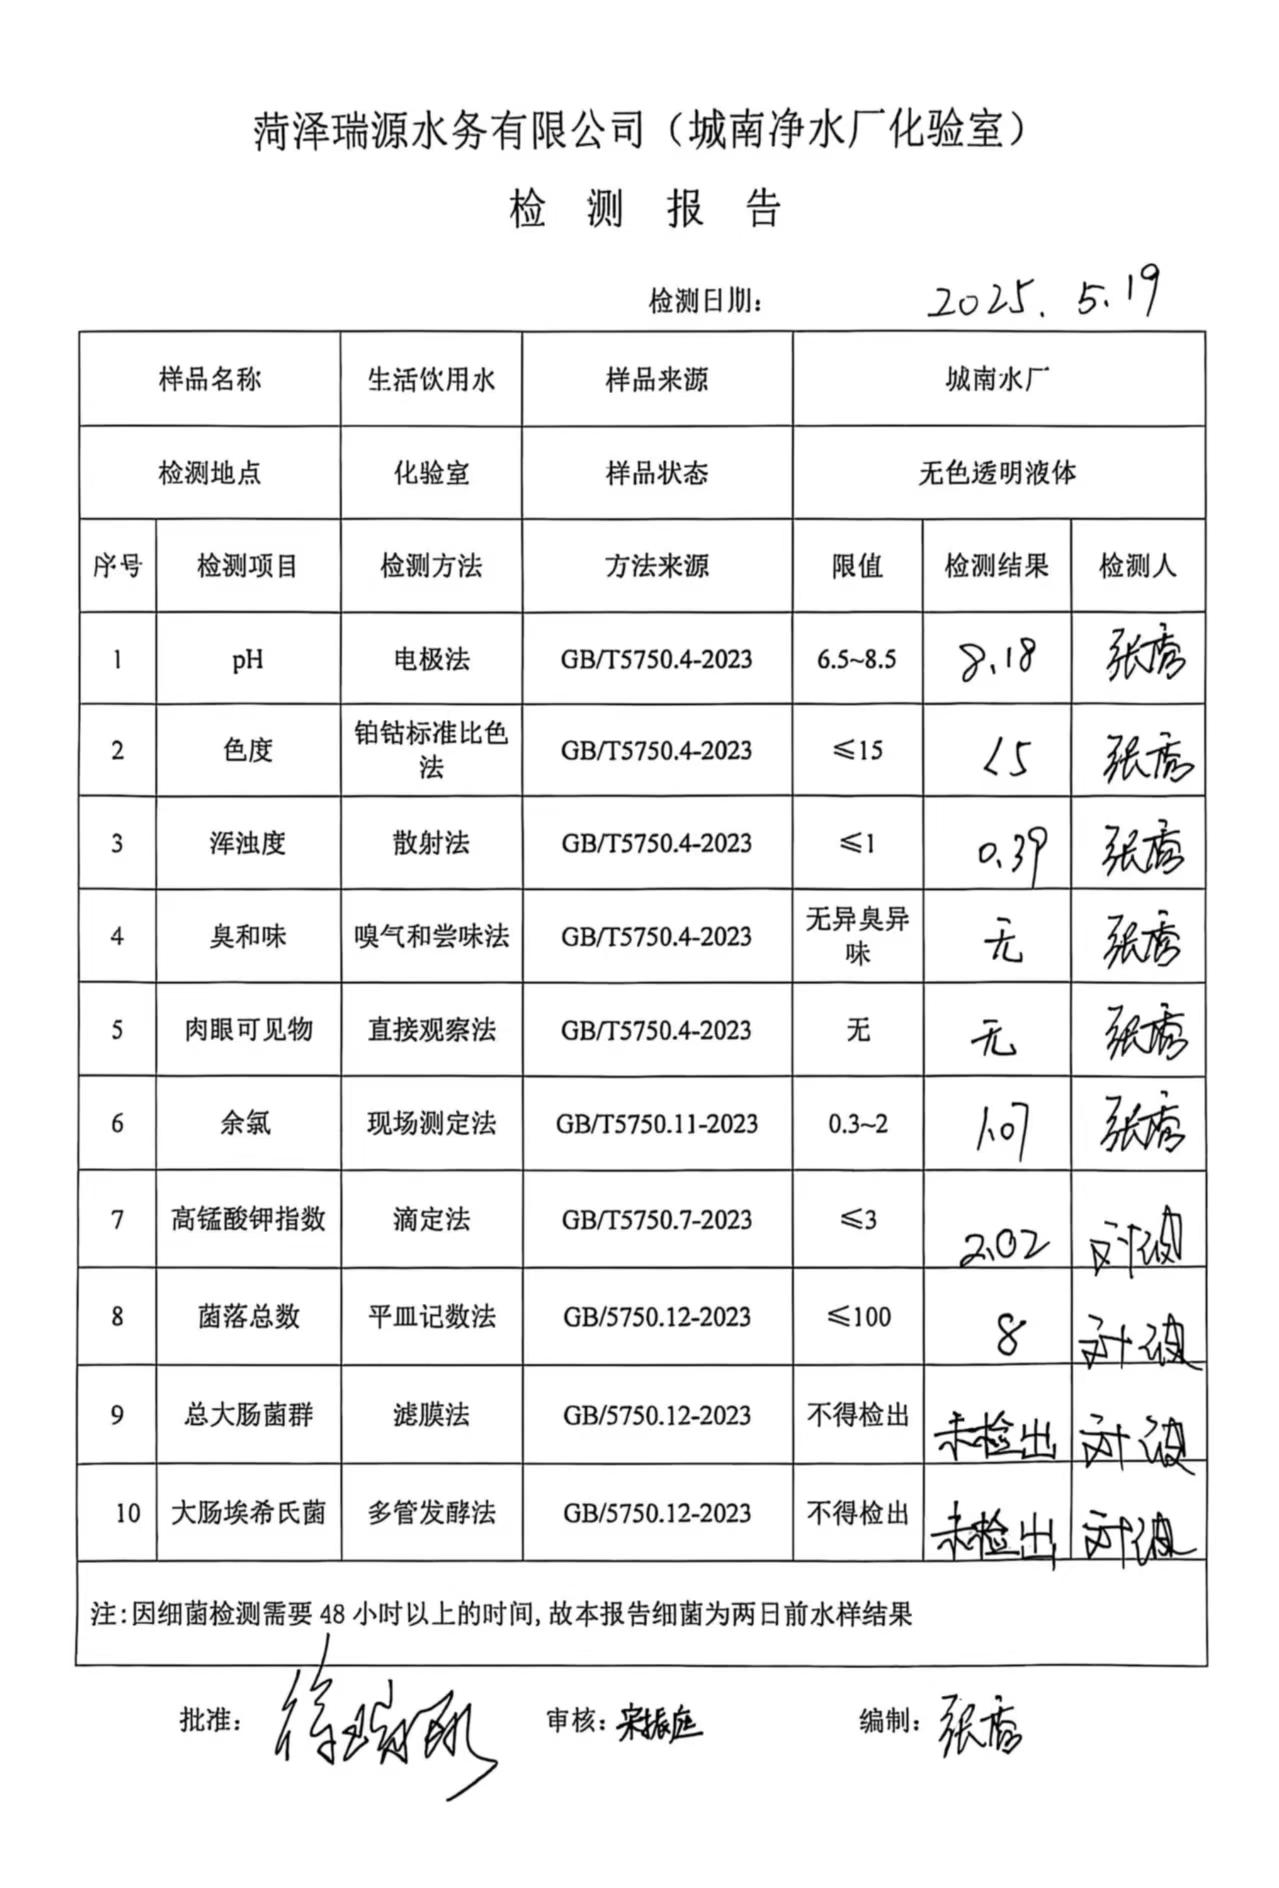 菏泽瑞源水务有限公司（城南净水厂化验室）
检 测 报 告
检测日期： 2025.5.19
样品名称 生活饮用水 样品来源 城南水厂
检测地点 化验室 样品状态 无色透明液体
序号 检测项目 检测方法 方法来源 限值 检测结果 检测人
1 pH 电极法 GB/T5750.4-2023 6.5~8.5 8.18 张秀
2 色度 铂钴标准比色法 GB/T5750.4-2023 ≤15 <5 张秀
3 浑浊度 散射法 GB/T5750.4-2023 ≤1 0.39 张秀
4 臭和味 嗅气和尝味法 GB/T5750.4-2023 无异臭异味 无 张秀
5 肉眼可见物 直接观察法 GB/T5750.4-2023 无 无 张秀
6 余氯 现场测定法 GB/T5750.11-2023 0.3~2 1.07 张秀
7 高锰酸钾指数 滴定法 GB/T5750.7-2023 ≤3 2.02 刘波
8 菌落总数 平皿记数法 GB/5750.12-2023 ≤100 8 刘波
9 总大肠菌群 滤膜法 GB/5750.12-2023 不得检出 未检出 刘波
10 大肠埃希氏菌 多管发酵法 GB/5750.12-2023 不得检出 未检出 刘波
注：因细菌检测需要 48 小时以上的时间,故本报告细菌为两日前水样结果
批准： 审核：宋振庭 编制：张秀